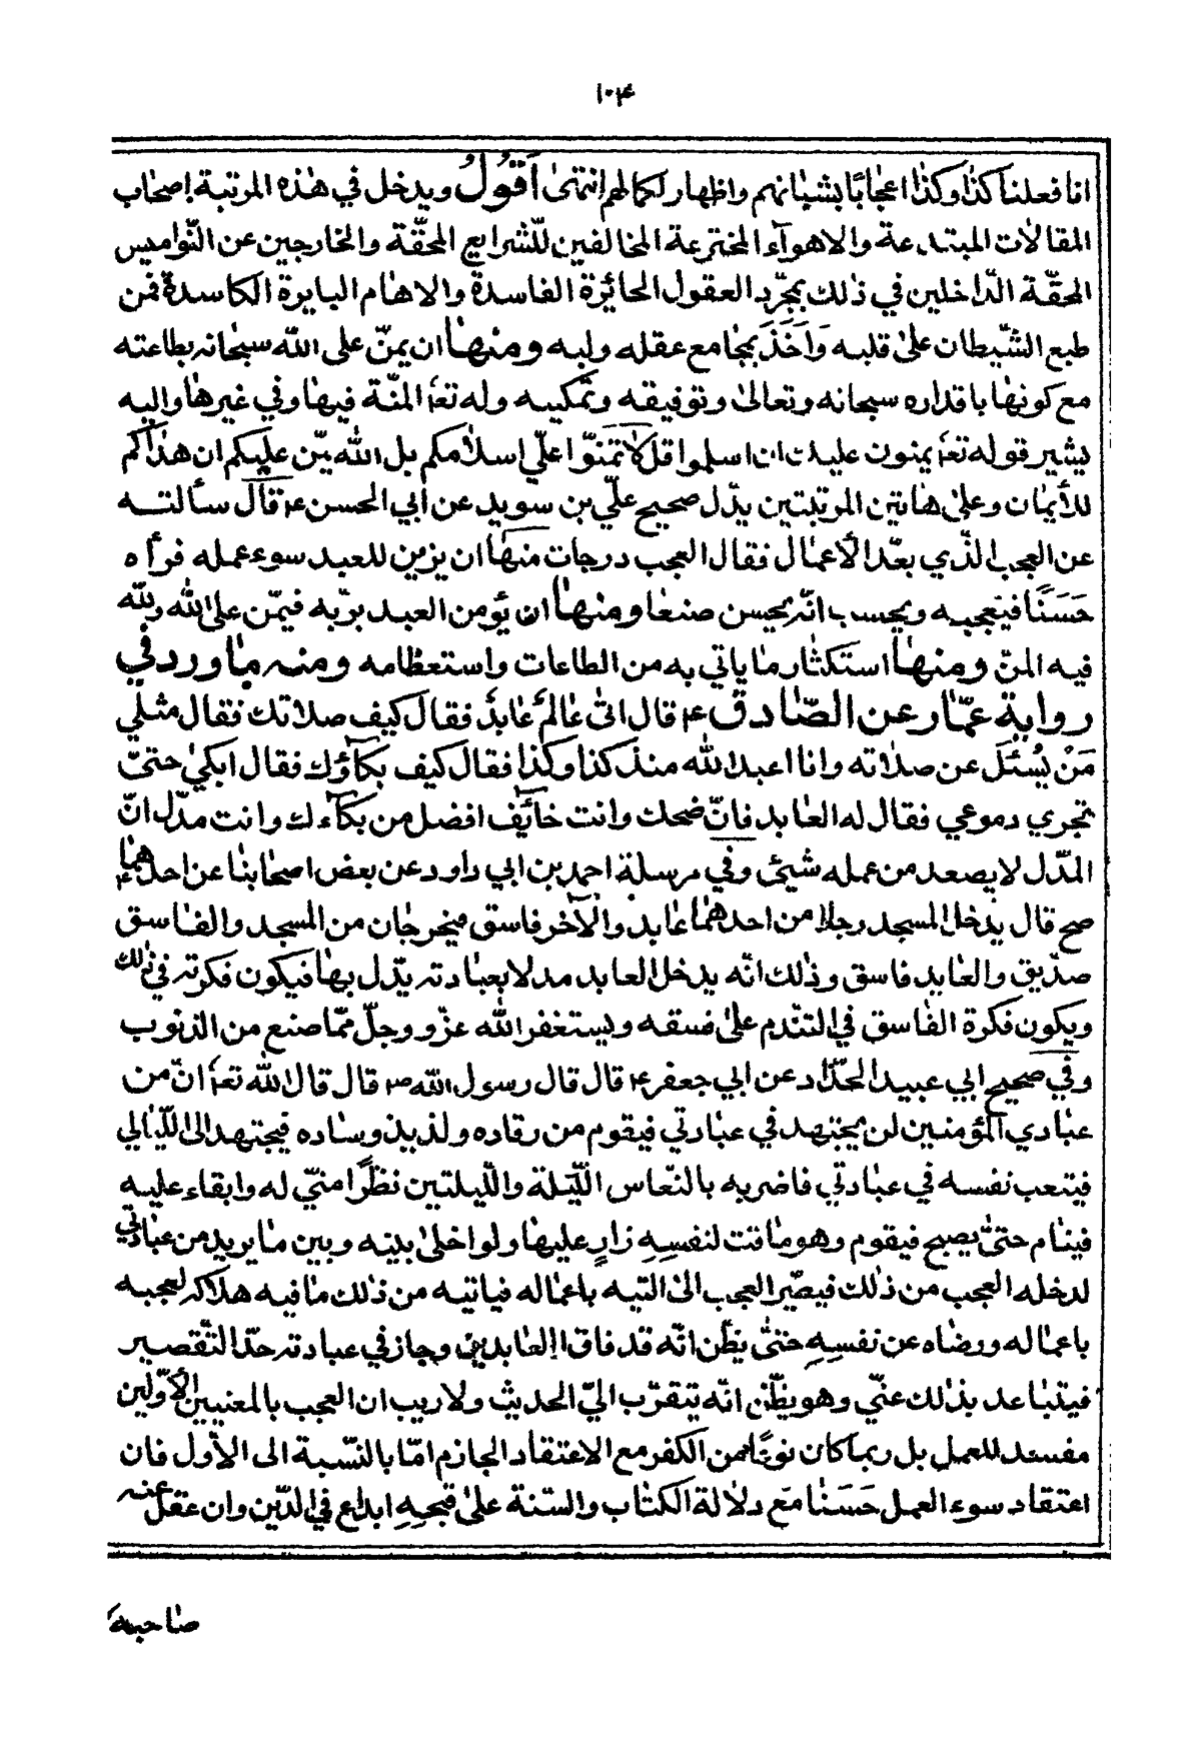 ١٠٤
انا فعلنا كذا وكذا اعجابًا بشبانهم واظهار لكمالهم انتهى اَقُولُ ويدخل في هذه المرتبة اصحاب
المقالات المبتدعة والاهوآء المخترعة المخالفين للشرايع المحقّة والخارجين عن النّواميس
الحقّة الدّاخلين في ذلك بمجرّد العقول الحائزة الفاسدة والاهام البايرة الكاسدة فمن
طبع الشّيطان على قلبه وَاَخَذَ بمجامع عقله ولبه ومنها ان يمنّ على اللّه سبحانه بطاعته
مع كونها باقداره سبحانه وتعالى وتوفيقه وتمكيبه وله تعا المنّة فيها وفي غيرها واليه
يشير قوله تعا يمنون عليك ان اسلموا قل لا تمنّوا علي اسلامكم بل الله يمّن عليكم ان هذاكم
للأيمان وعلى هاتين المرتبتين يدّل صحيح علّي بن سويد عن ابي الحسن ع قال سألته
عن العجب الذّي يعدّ الأعمال فقال العجب درجات منها ان يزين للعبد سوء عمله فرأه
حَسَنًا فيتعجبه ويحسب انّه يحسن صنعا ومنها ان يؤمن العبد بربّه فيمّن على الله وللّه
فيه المنّ ومنها استكثار ما ياتي به من الطاعات واستعظامه ومنه ما ورد في
رواية عمّار عن الصّادق ع قال اتى عَالمٌ عابدٌ فقال كيف صلاتك فقال مثلي
مَنْ يُسئَل عن صلاته وانا اعبد الله منذ كذا وكذا فقال كيف بكآؤك فقال ابكي حتىّ
تجري دموعي فقال له العابد فانّ ضحك وانت خآئف افضل من بكآءك وانت مدّل انّ
المدّل لا يصعد من عمله شيئ وفي مرسلة احمد بن ابي داود عن بعض اصحابنا عن احدهما ع
صح قال يدخل المسجد رجلا من احدهما عابد والآخر فاسق فيخرجان من المسجد والفاسق
صدّيق والعابد فاسق وذلك انّه يدخل العابد مدلا بعبادته يدّل بها فيكون فكرته في ذلك
ويكون فكرة الفاسق في التنّدم على فسقه ويستغفر الله عزّ ووجلّ ممّا صنع من الذنوب
وفي صحيح ابي عبيد الحدّاد عن ابي جعفر ع قال قال رسول اللّه ص قال قال الله تعا انّ من
عبادي المؤمنين لن يجتهد في عبادتي فيقوم من رقاده ولذيذ وساده فيجتهد الى اللّيالي
فيتعب نفسه في عبادتي فاضربه بالنّعاس اللّيلة واللّيلتين نظرًا منّي له وابقاء عليه
فينام حتىّ يصبح فيقوم وهو ماقت لنفسهِ زارٍ عليها ولو اخلى بينه وبين ما يريد من عبادتي
لدخله العجب من ذلك فيصّير العجب الى التيه باعماله فياتيه من ذلك ما فيه هلاكه لعجبه
باعماله ورضاه عن نفسهِ حتىّ يظّن انّه قد فاق العابدين وجاز في عبادته حدّ التقصير
فيتباعد بذلك عنّي وهو يظّن انّه يتقرّب اليّ الحديث ولا ريب ان العجب بالمعنيين الاوّلين
مفسد للعمل بل ربما كان نوعًا من الكفر مع الاعتقاد الجازم امّا بالنّسبة الى الأول فان
اعتقاد سوء العمل حَسَنا مَع دلالة الكتاب والسّنة على قبحهِ ابداع في الدّين وان عقل عنه
صاحبه